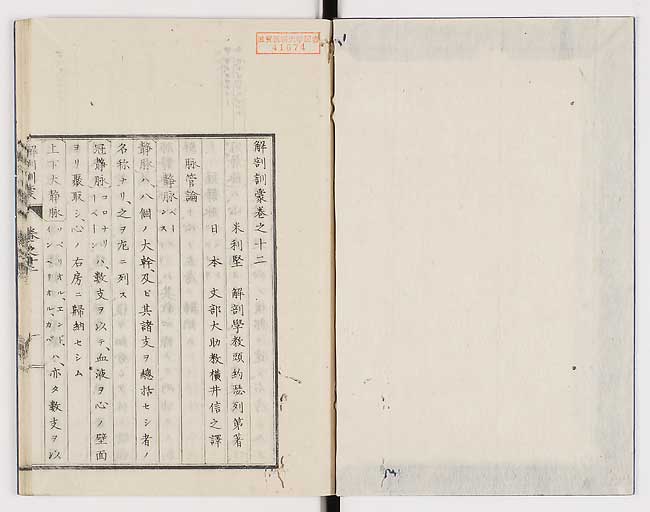 解剖訓蒙卷之十二
米利堅 解剖學教頭約瑟列第著
日本 文部大助教横井信之譯
脉管論
静脉ベーンス
静脉ハ、八個ノ大幹、及ビ其諸支ヲ總括セシ者ノ
名称ナリ、之ヲ左ニ列ス
冠静脉コロナリーベーンハ、數支ヲ以テ、血液ヲ心ノ壁面
ヨリ聚取シ、心ノ右房ニ歸納セシム
上下大静脉ハ、亦タ數支ヲ以
解剖訓蒙
41674